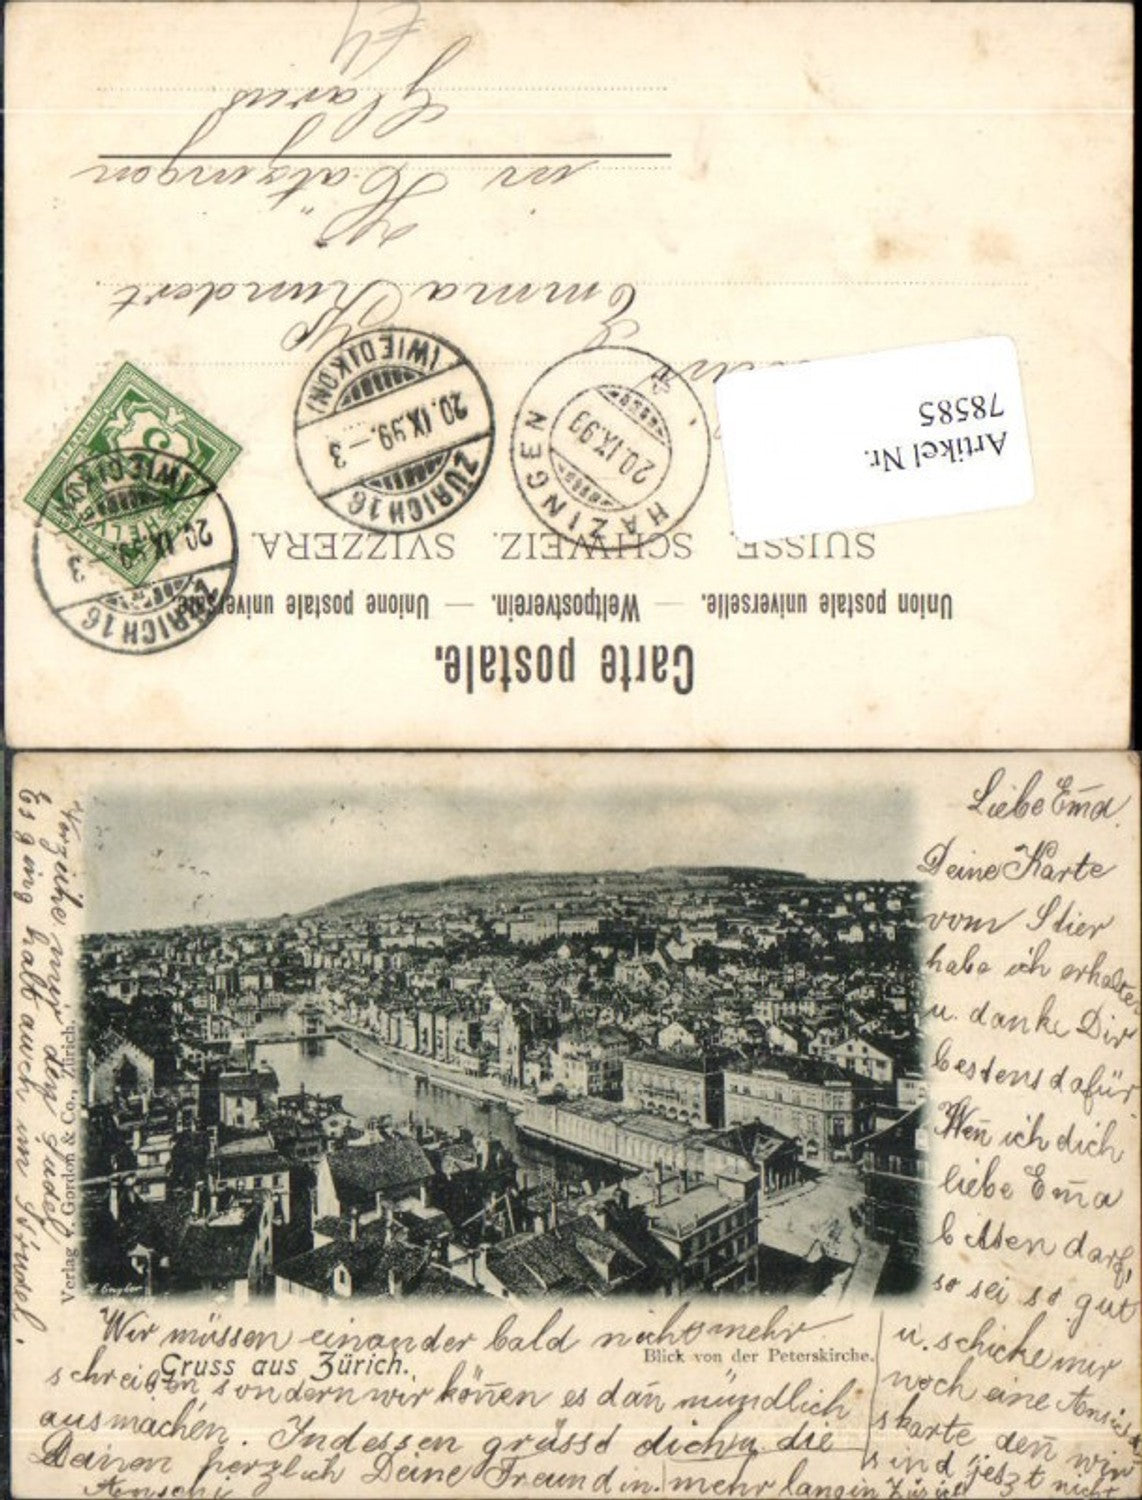 Carte postale.
Union postale universelle. — Weltpostverein. — Unione postale universale.
SUISSE. SCHWEIZ. SVIZZERA.
Artikel Nr.
78585
HAZINGEN
20.IX.93
ZÜRICH 16
20.IX.99.-3
(WIEDIKON)
ZÜRICH 16
20.IX.99.-3
(WIEDIKON)
HELVETIA
5
Emma Kundert
in Hätzingen
Glarus
Liebe Em̄a.
Deine Karte
vom Stier
habe ich erhalten
u. danke Dir
bestens dafür.
Wen̄ ich dich
liebe Em̄a
bitten darf,
so sei so gut
u. schicke mir
noch eine Ansichts
karte den̄ wir
sind jetzt nicht
mehr lang in Zürich
Wir müssen einander bald nicht mehr
schreiben sondern wir kön̄en es dan̄ mündlich
ausmachen. Indessen grüsst dich u. die
Deinen herzlich Deine Freundin.
Verzeihe mir den Sudel
Es ging halt auch im Trudel.
Gruss aus Zürich.
Blick von der Peterskirche.
Verlag v. Gordon & Co., Zürich.